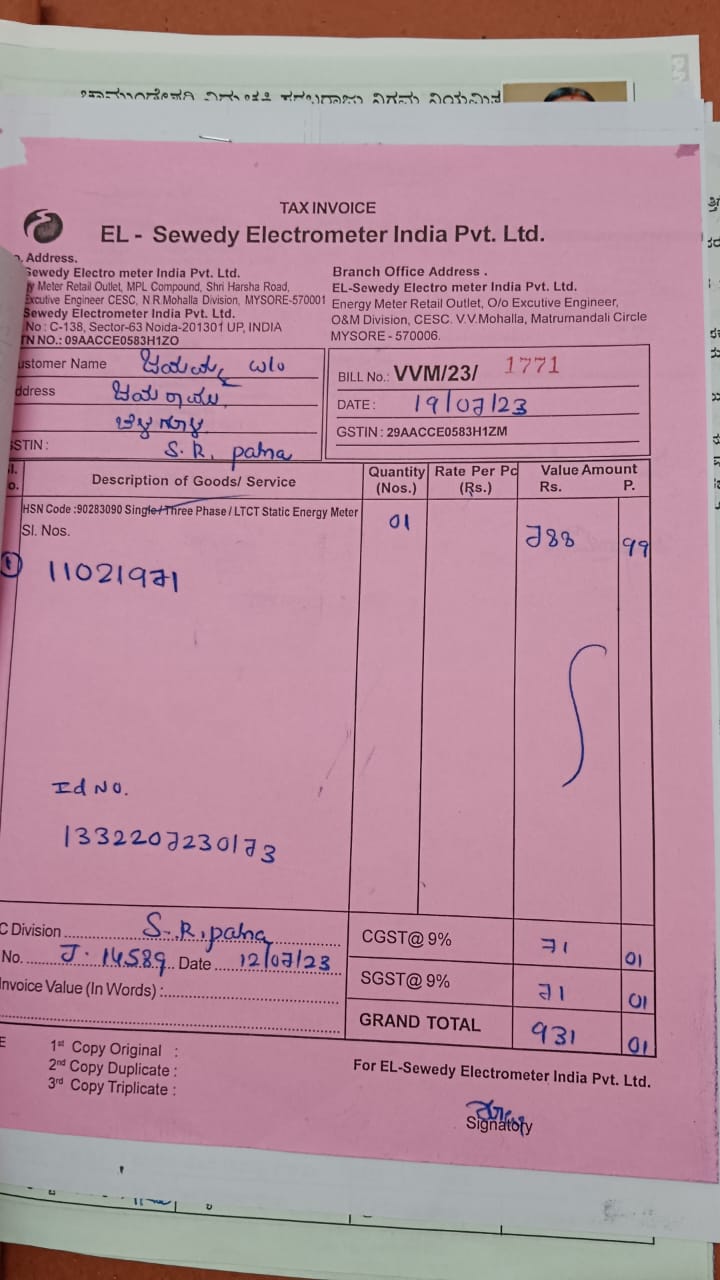 TAX INVOICE
EL - Sewedy Electrometer India Pvt. Ltd.
Address.
Sewedy Electro meter India Pvt. Ltd.
y Meter Retail Outlet, MPL Compound, Shri Harsha Road,
Excutive Engineer CESC, N.R.Mohalla Division, MYSORE-570001
Sewedy Electrometer India Pvt. Ltd.
No : C-138, Sector-63 Noida-201301 UP, INDIA
TN NO.: 09AACCE0583H1ZO
Branch Office Address .
EL-Sewedy Electro meter India Pvt. Ltd.
Energy Meter Retail Outlet, O/o Excutive Engineer,
O&M Division, CESC. V.V.Mohalla, Matrumandali Circle
MYSORE - 570006.
ustomer Name ಜಯಮ್ಮ w/o
ddress ಜಯರಾಮು
STIN : S.R. patna
BILL No.: VVM/23/ 1771
DATE : 19/07/23
GSTIN : 29AACCE0583H1ZM
Description of Goods/ Service
Quantity (Nos.)
Rate Per Pc (Rs.)
Value Amount
Rs. P.
HSN Code :90283090 Single/Three Phase / LTCT Static Energy Meter
Sl. Nos.
01 788 99
1 11021971
Id No.
1332207230173
C Division S.R.patna
No. J. 14589 Date 12/07/23
Invoice Value (In Words) :
CGST@ 9% 71 01
SGST@ 9% 71 01
GRAND TOTAL 931 01
E 1st Copy Original :
2nd Copy Duplicate :
3rd Copy Triplicate :
For EL-Sewedy Electrometer India Pvt. Ltd.
Signatory